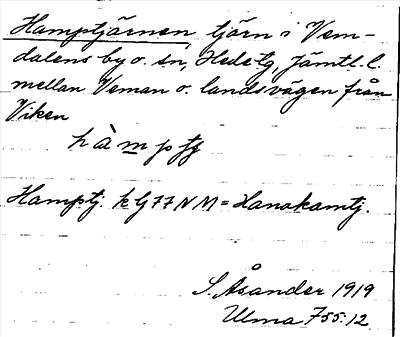 Hamptjärnen, tjärn i Vem-
dalens by o. sn, Hede tg, Jämtl. l.
mellan Veman o. landsvägen från
Viken
hàmptj
Hamptj. k Gj 77 N M = Hanakamtj.
S. Åsander 1919
Ulma 755:12